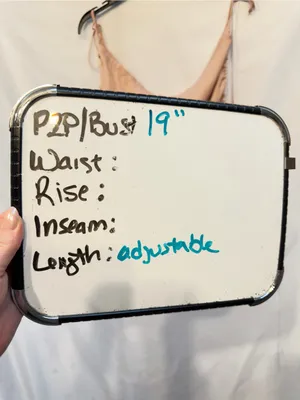 P2P/Bust 19"
Waist:
Rise:
Inseam:
Length: adjustable